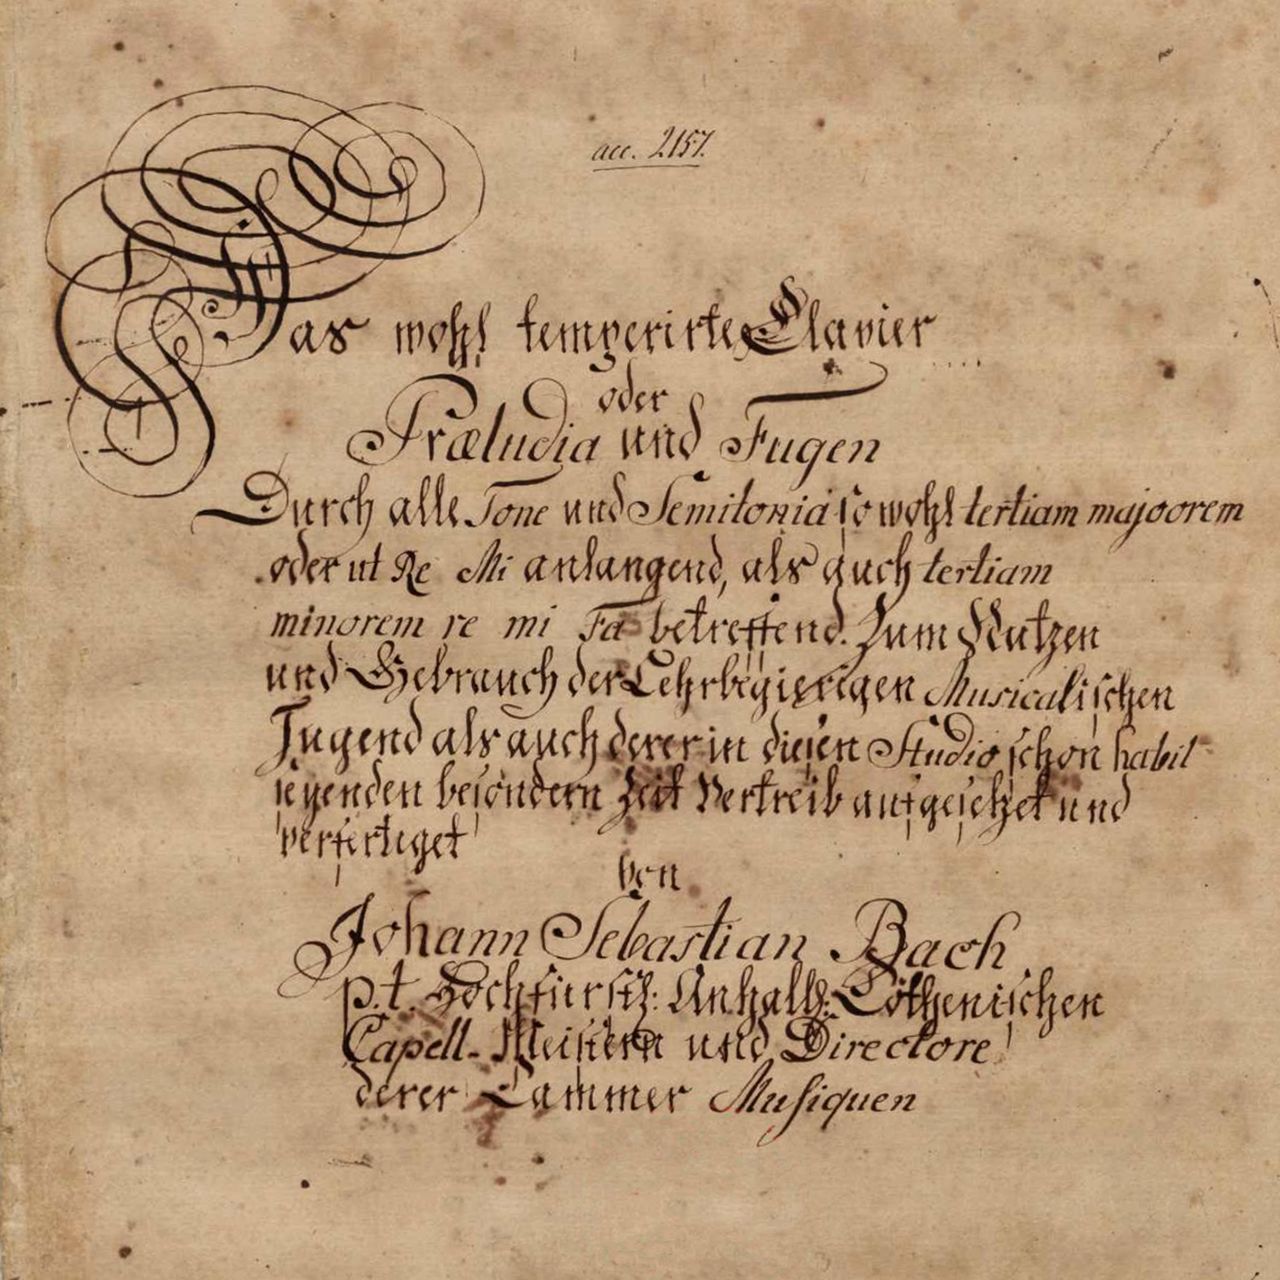 acc. 2157.
Das wohl temperirte Clavier
oder
Præludia und Fugen
Durch alle Tone und Semitonia so wohl tertiam majoorem
oder ut Re Mi anlangend, als auch tertiam
minorem re mi Fa betreffend. Zum Nutzen
und Gebrauch der Lehrbegierigen Musicalischen
Jugend als auch derer in diesen Studio schon habil
seyenden besondern Zeit Vertreib aufgesetzet und
verfertiget
von
Johann Sebastian Bach
p.t. Hochfürstl: Anhalt: Cöthenischen
Capell-Meistern und Directore
derer Cammer Musiquen